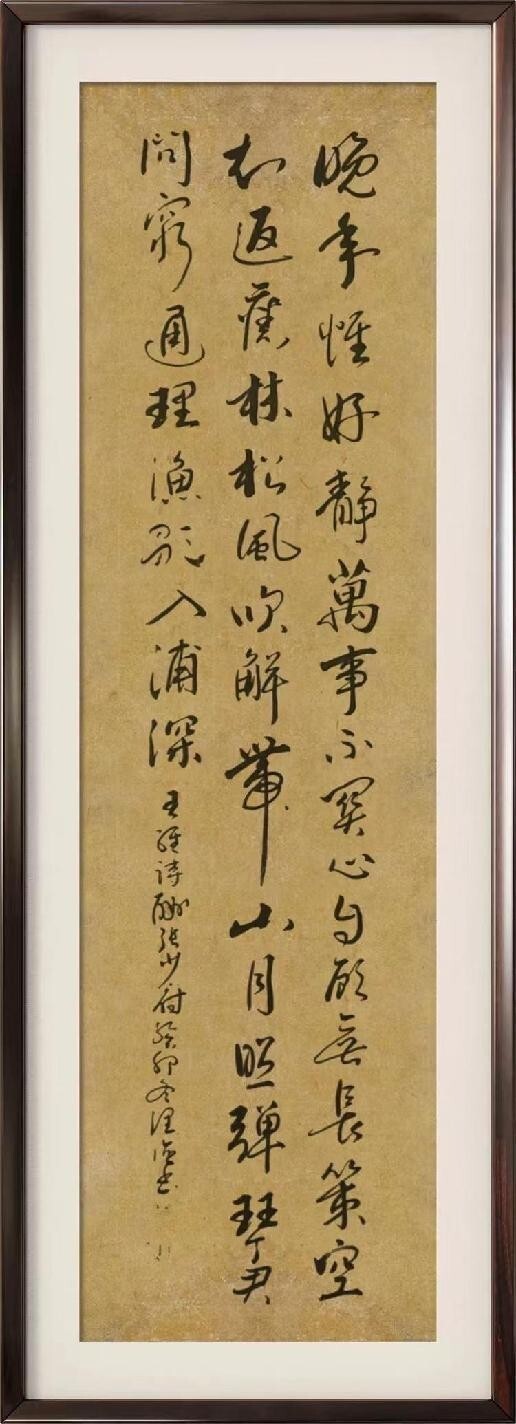 晚年惟好靜萬事不關心自顧無長策空
知返舊林松風吹解帶山月照彈琴君
問窮通理漁歌入浦深
王維詩酬張少府癸卯冬書